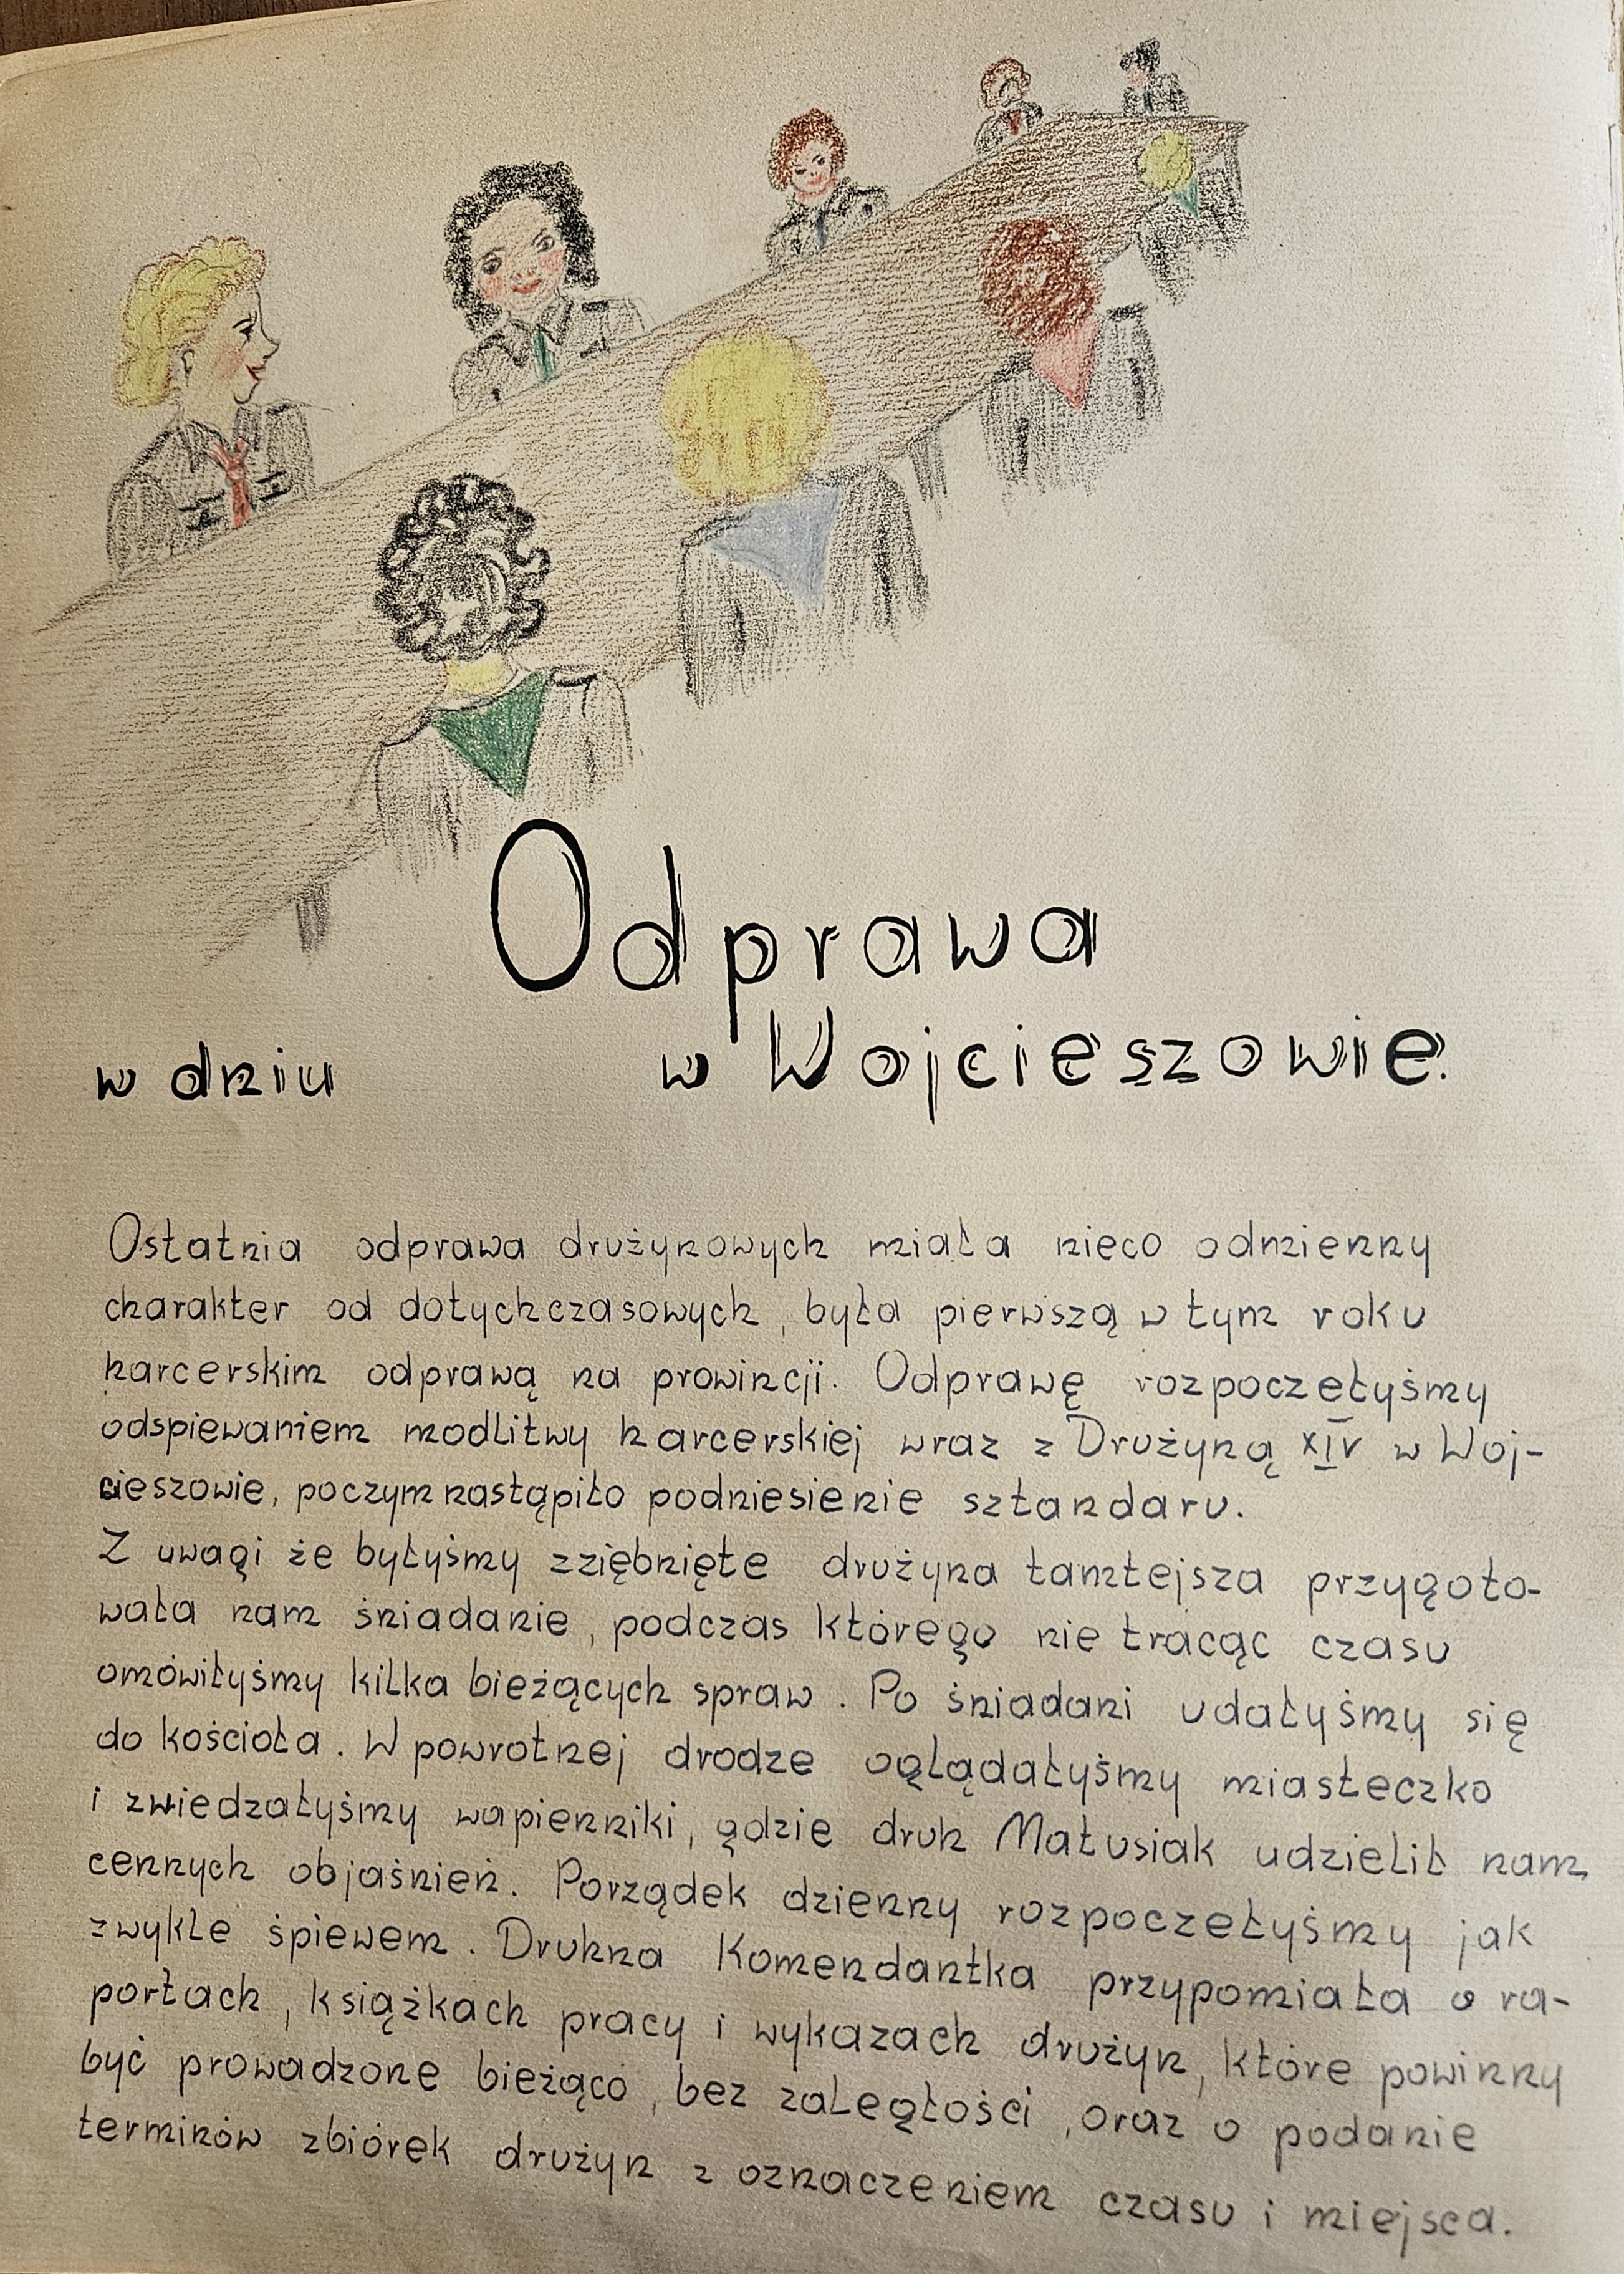 Odprawa
w dniu w Wojcieszowie.
Ostatnia odprawa drużynowych miała nieco odmienny
charakter od dotychczasowych, była pierwszą w tym roku
harcerskim odprawą na prowincji. Odprawę rozpoczełyśmy
odspiewaniem modlitwy harcerskiej wraz z Drużyną XIV w Woj-
cieszowie, poczym nastąpiło podniesienie sztandaru.
Z uwagi że byłyśmy zziębnięte drużyna tamtejsza przygoto-
wała nam śniadanie, podczas którego nie tracąc czasu
omówiłyśmy kilka bieżących spraw. Po śniadani udałyśmy się
do kościoła. W powrotnej drodze oglądałyśmy miasteczko
i zwiedzałyśmy wapienniki, gdzie druh Matusiak udzielił nam
cennych objaśnień. Porządek dzienny rozpoczełyśmy jak
zwykle śpiewem. Druhna Komendantka przypomiała o ra-
portach, książkach pracy i wykazach drużyn, które powinny
być prowadzone bieżąco, bez zaległości, oraz o podanie
terminów zbiórek drużyn z oznaczeniem czasu i miejsca.